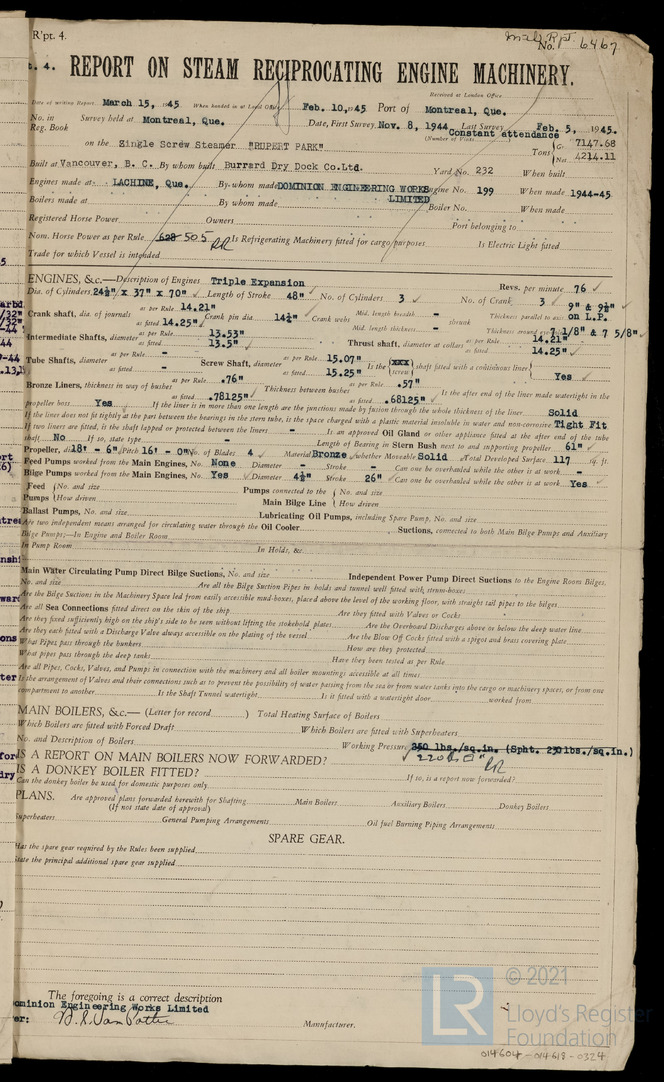 R'pt. 4.
Mtl. Rpt.
No. 6467
t. 4. REPORT ON STEAM RECIPROCATING ENGINE MACHINERY.
Received at London Office
Date of writing Report March 15, 1945 When handed in at Local Office Feb. 10, 1945 Port of Montreal, Que.
No. in Reg. Book Survey held at Montreal, Que. Date, First Survey Nov. 8, 1944 Last Survey Feb. 5, 1945.
Constant attendance
(Number of Visits
on the Single Screw Steamer "RUPERT PARK" Tons Gross 7147.68 Net 4214.11
Built at Vancouver, B. C. By whom built Burrard Dry Dock Co. Ltd. Yard No. 232 When built
Engines made at LACHINE, Que. By whom made DOMINION ENGINEERING WORKS LIMITED Engine No. 199 When made 1944-45
Boilers made at By whom made Boiler No. When made
Registered Horse Power Owners Port belonging to
Nom. Horse Power as per Rule 628 505 RR Is Refrigerating Machinery fitted for cargo purposes Is Electric Light fitted
Trade for which Vessel is intended
ENGINES, &c.—Description of Engines Triple Expansion Revs. per minute 76
Dia. of Cylinders 24½" x 37" x 70" Length of Stroke 48" No. of Cylinders 3 No. of Cranks 3
Crank shaft, dia. of journals as per Rule 14.21" as fitted 14.25" Crank pin dia 14¼" Crank webs Mid. length breadth - Mid. length thickness - shrunk Thickness parallel to axis 9" & 9½" on L.P. Thickness around eye 7 1/8" & 7 5/8"
Intermediate Shafts, diameter as per Rule 13.53" as fitted 13.5" Thrust shaft, diameter at collars as per Rule 14.21" as fitted 14.25"
Tube Shafts, diameter as per Rule - as fitted - Screw Shaft, diameter as per Rule 15.07" as fitted 15.25" Is the screw shaft fitted with a continuous liner Yes
Bronze Liners, thickness in way of bushes as per Rule .76" as fitted .78125" Thickness between bushes as per Rule .57" as fitted .68125" Is the after end of the liner made watertight in the
propeller boss Yes If the liner is in more than one length are the junctions made by fusion through the whole thickness of the liner Solid
If the liner does not fit tightly at the part between the bearings in the stern tube, is the space charged with a plastic material insoluble in water and non-corrosive Tight Fit
If two liners are fitted, is the shaft lapped or protected between the liners - Is an approved Oil Gland or other appliance fitted at the after end of the tube
shaft No If so, state type - Length of Bearing in Stern Bush next to and supporting propeller 61"
Propeller, dia 18' - 6" Pitch 16' - 0" No. of Blades 4 Material Bronze whether Moveable Solid Total Developed Surface 117 sq. ft.
Feed Pumps worked from the Main Engines, No. None Diameter - Stroke - Can one be overhauled while the other is at work -
Bilge Pumps worked from the Main Engines, No. Yes Diameter 4½" Stroke 26" Can one be overhauled while the other is at work Yes
Feed Pumps No. and size How driven Pumps connected to the Main Bilge Line No. and size How driven
Ballast Pumps, No. and size Lubricating Oil Pumps, including Spare Pump, No. and size
Are two independent means arranged for circulating water through the Oil Cooler Suctions, connected to both Main Bilge Pumps and Auxiliary
Bilge Pumps;—In Engine and Boiler Room
In Pump Room In Holds, &c.
Main Water Circulating Pump Direct Bilge Suctions, No. and size Independent Power Pump Direct Suctions to the Engine Room Bilges,
No. and size Are all the Bilge Suction Pipes in holds and tunnel well fitted with strum-boxes
Are the Bilge Suctions in the Machinery Space led from easily accessible mud-boxes, placed above the level of the working floor, with straight tail pipes to the bilges
Are all Sea Connections fitted direct on the skin of the ship Are they fitted with Valves or Cocks
Are they fixed sufficiently high on the ship's side to be seen without lifting the stokehold plates Are the Overboard Discharges above or below the deep water line
Are they each fitted with a Discharge Valve always accessible on the plating of the vessel Are the Blow Off Cocks fitted with a spigot and brass covering plate
What Pipes pass through the bunkers How are they protected
What pipes pass through the deep tanks Have they been tested as per Rule
Are all Pipes, Cocks, Valves, and Pumps in connection with the machinery and all boiler mountings accessible at all times
Is the arrangement of Valves and their connections such as to prevent the possibility of water passing from the sea or from water tanks into the cargo or machinery spaces, or from one
compartment to another Is the Shaft Tunnel watertight Is it fitted with a watertight door worked from
MAIN BOILERS, &c.— (Letter for record ) Total Heating Surface of Boilers
Which Boilers are fitted with Forced Draft Which Boilers are fitted with Superheaters
No. and Description of Boilers Working Pressure 250 lbs./sq.in. (Spht. 230lbs./sq.in.)
220 lbs □" RR
IS A REPORT ON MAIN BOILERS NOW FORWARDED?
IS A DONKEY BOILER FITTED? If so, is a report now forwarded?
Can the donkey boiler be used for domestic purposes only
PLANS. Are approved plans forwarded herewith for Shafting Main Boilers Auxiliary Boilers Donkey Boilers
(If not state date of approval)
Superheaters General Pumping Arrangements Oil fuel Burning Piping Arrangements
SPARE GEAR.
Has the spare gear required by the Rules been supplied
State the principal additional spare gear supplied
The foregoing is a correct description
Dominion Engineering Works Limited
Manufacturer.
LR © 2021
Lloyd's Register
Foundation
014604-014618-0324